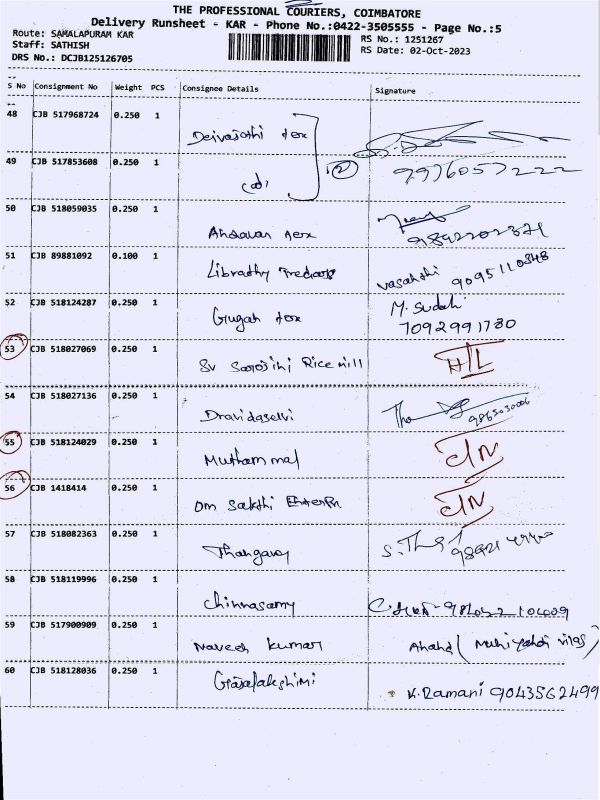 THE PROFESSIONAL COURIERS, COIMBATORE
Delivery Runsheet - KAR - Phone No.:0422-3505555 - Page No.:5
Route: SAMALAPURAM KAR
RS No.: 1251267
Staff: SATHISH
RS Date: 02-Oct-2023
DRS No.: DCJB125126705
S No Consignment No Weight PCS Consignee Details Signature
48 CJB 517968724 0.250 1 Deivajothi tex
49 CJB 517853608 0.250 1 (2) 9976057222
50 CJB 518059035 0.250 1 Andavan tex
51 CJB 89881092 0.100 1 Vasanthi 9095110348
52 CJB 518124287 0.250 1 Gugan tex M. Sudah
7092991780
53 CJB 518027069 0.250 1 Sv Sarojini Rice mill
54 CJB 518027136 0.250 1 Dravidaselvi 9865030006
55 CJB 518124029 0.250 1 Muthammal
56 CJB 1418414 0.250 1 Om Sakthi
57 CJB 518082363 0.250 1 Thangaraj
58 CJB 518119996 0.250 1 Chinnasamy
59 CJB 517900909 0.250 1 Naveen Kumar Anand
60 CJB 518128036 0.250 1 K. Ramani 9043562499